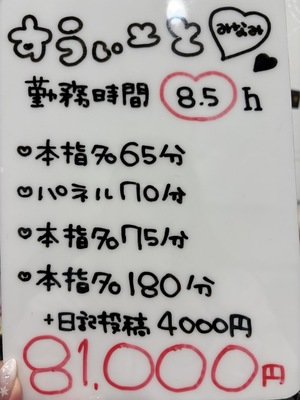 すうぃーと みなみ
勤務時間 8.5h
♡本指名65分
♡パネル70分
♡本指名75分
♡本指名180分
+日記投稿4000円
81.000円